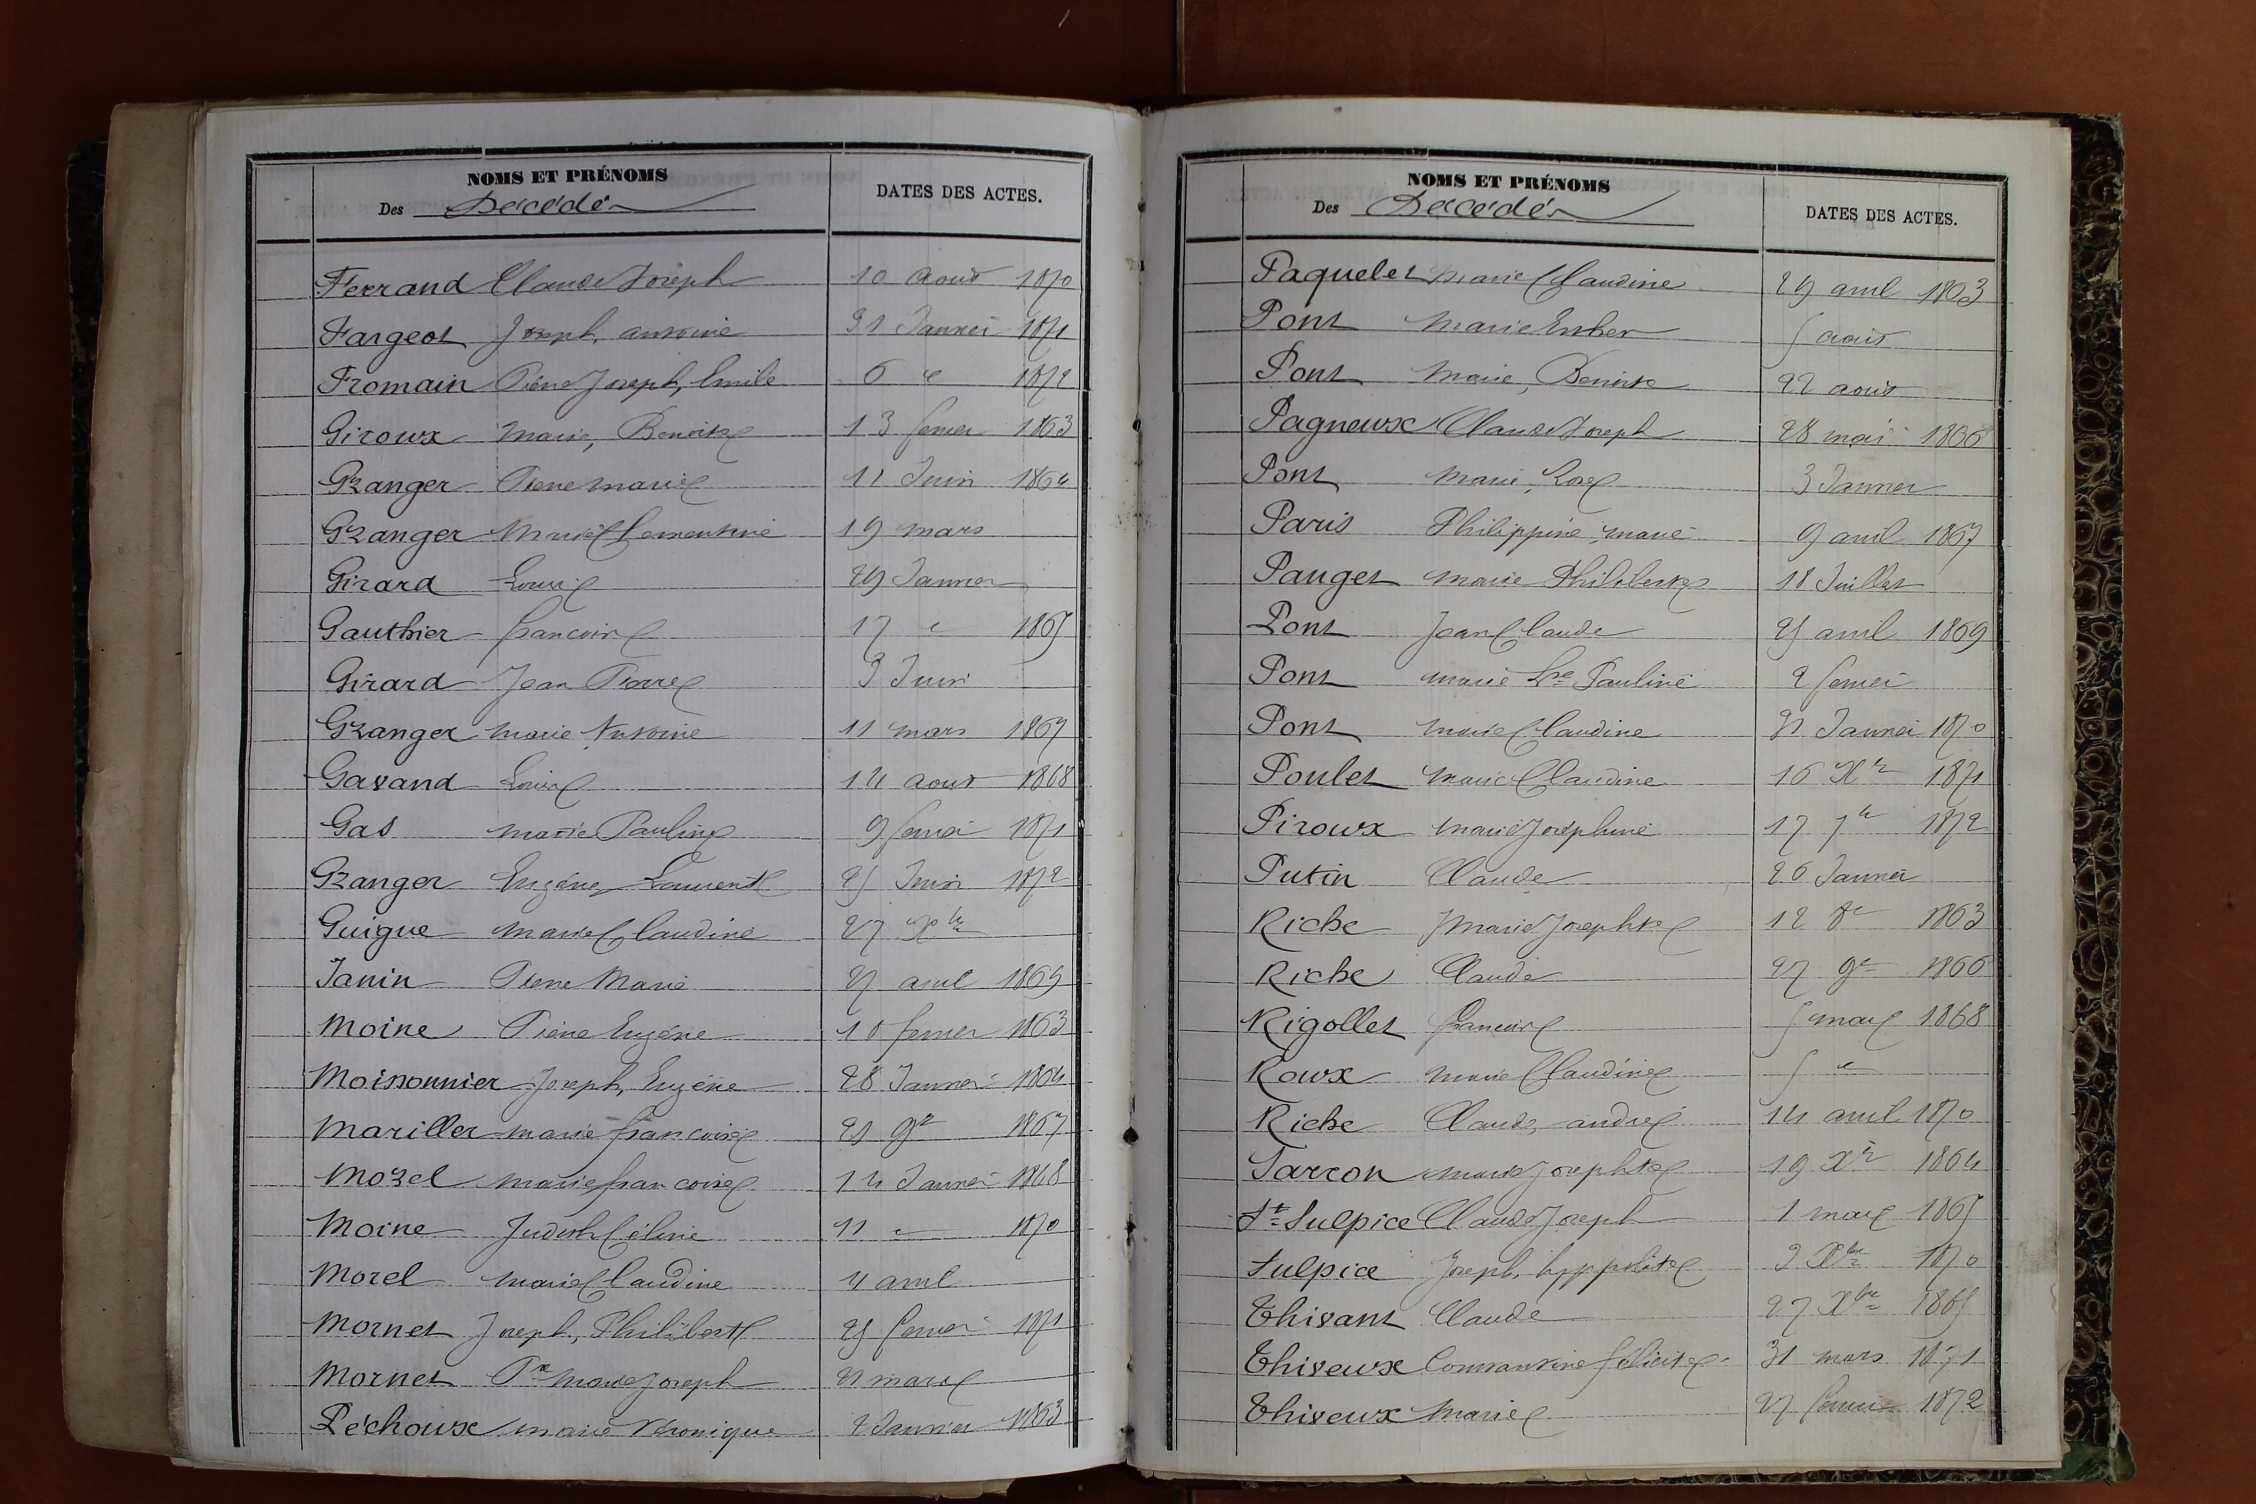 NOMS ET PRÉNOMS
Des Décédés
DATES DES ACTES.
Ferrand Claude Joseph 10 aout 1870
Fargeot Joseph, antoine 31 Janvier 1871
Fromain Pierre Joseph, Emile 6 " 1872
Giroux Marie, Benoite 13 fevrier 1863
Granger Pierre marie 11 Juin 1864
Granger Marie Clementine 19 mars
Girard Louis 29 Janvier
Gauthier francoise 17 " 1865
Girard Jean Pierre 3 Juin
Granger marie Antoine 11 mars 1867
Gavand Louise 14 aout 1868
Gas marie Pauline 9 fevrier 1871
Granger Eugène Laurent 25 Juin 1872
Guigue marie Claudine 27
Janin Pierre Marie avril 1869
Moine Pierre Eugène 10 fevrier 1863
Moissonnier Joseph, Eugène 28 Janvier 1864
Mariller marie francoise 21 9bre 1867
Morel marie francoise 14 Janvier 1868
Moine Judith Céline 11 " 1870
Morel marie Claudine 4 avril
Mornet Joseph, Philibert 25 fevrier 1871
Mornet Pre Marie Joseph mars
Péchoux marie Véronique 2 Janvier 1863
NOMS ET PRÉNOMS
Des Décédés
DATES DES ACTES.
Paquelet Marie Claudine 29 avril 1863
Pont Marie Esther 5 aout
Pont Marie, Benoite 22 aout
Pagneux Claude Joseph 28 mai 1866
Pont Marie, 3 Janvier
Paris Philippine, marie 9 avril 1867
Pauget marie Philiberte 18 Juillet
Pont Jean Claude 25 avril 1869
Pont marie Lse Pauline 2 fevrier
Pont Marie Claudine 31 Janvier 1870
Poulet Marie Claudine 16 Xbre 1871
Piroux marie Joséphine 17 7bre 1872
Putin Claude 26 Janvier
Riche Marie Josephte 12 8e 1863
Riche Claude 27 9e 1866
Rigollet francoise 5 mars 1868
Roux Marie Claudine 5 "
Riche Claude, andré 14 avril 1870
Tarcon marie Josephte 19 Xre 1864
St Sulpice Claude Joseph 1 mars 1865
Sulpice Joseph, hyppolite 2 Xbre 1870
Thivant Claude 27 Xbre 1865
Thiveux Constantine félicité 31 mars 1871
Thiveux Marie fevrier 1872